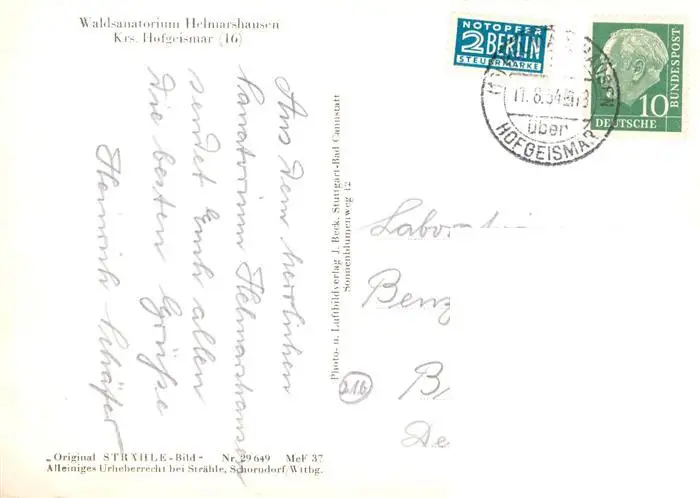 Waldsanatorium Helmarshausen
Krs. Hofgeismar (16)
Aus dem herrlichen
Sanatorium Helmarshausen
sendet Euch allen
die besten Grüße
Heinrich Schäfer
Photo- u. Luftbildverlag J. Beck, Stuttgart-Bad Cannstatt
Sonnenblumenweg 42
NOTOPFER
2 BERLIN
STEUERMARKE
11.8.54
über
HOFGEISMAR
DEUTSCHE BUNDESPOST
10
Labor
Benz
B
De
216
„Original STRÄHLE-Bild" Nr. 29649 MeF 37
Alleiniges Urheberrecht bei Strähle, Schorndorf/Wttbg.